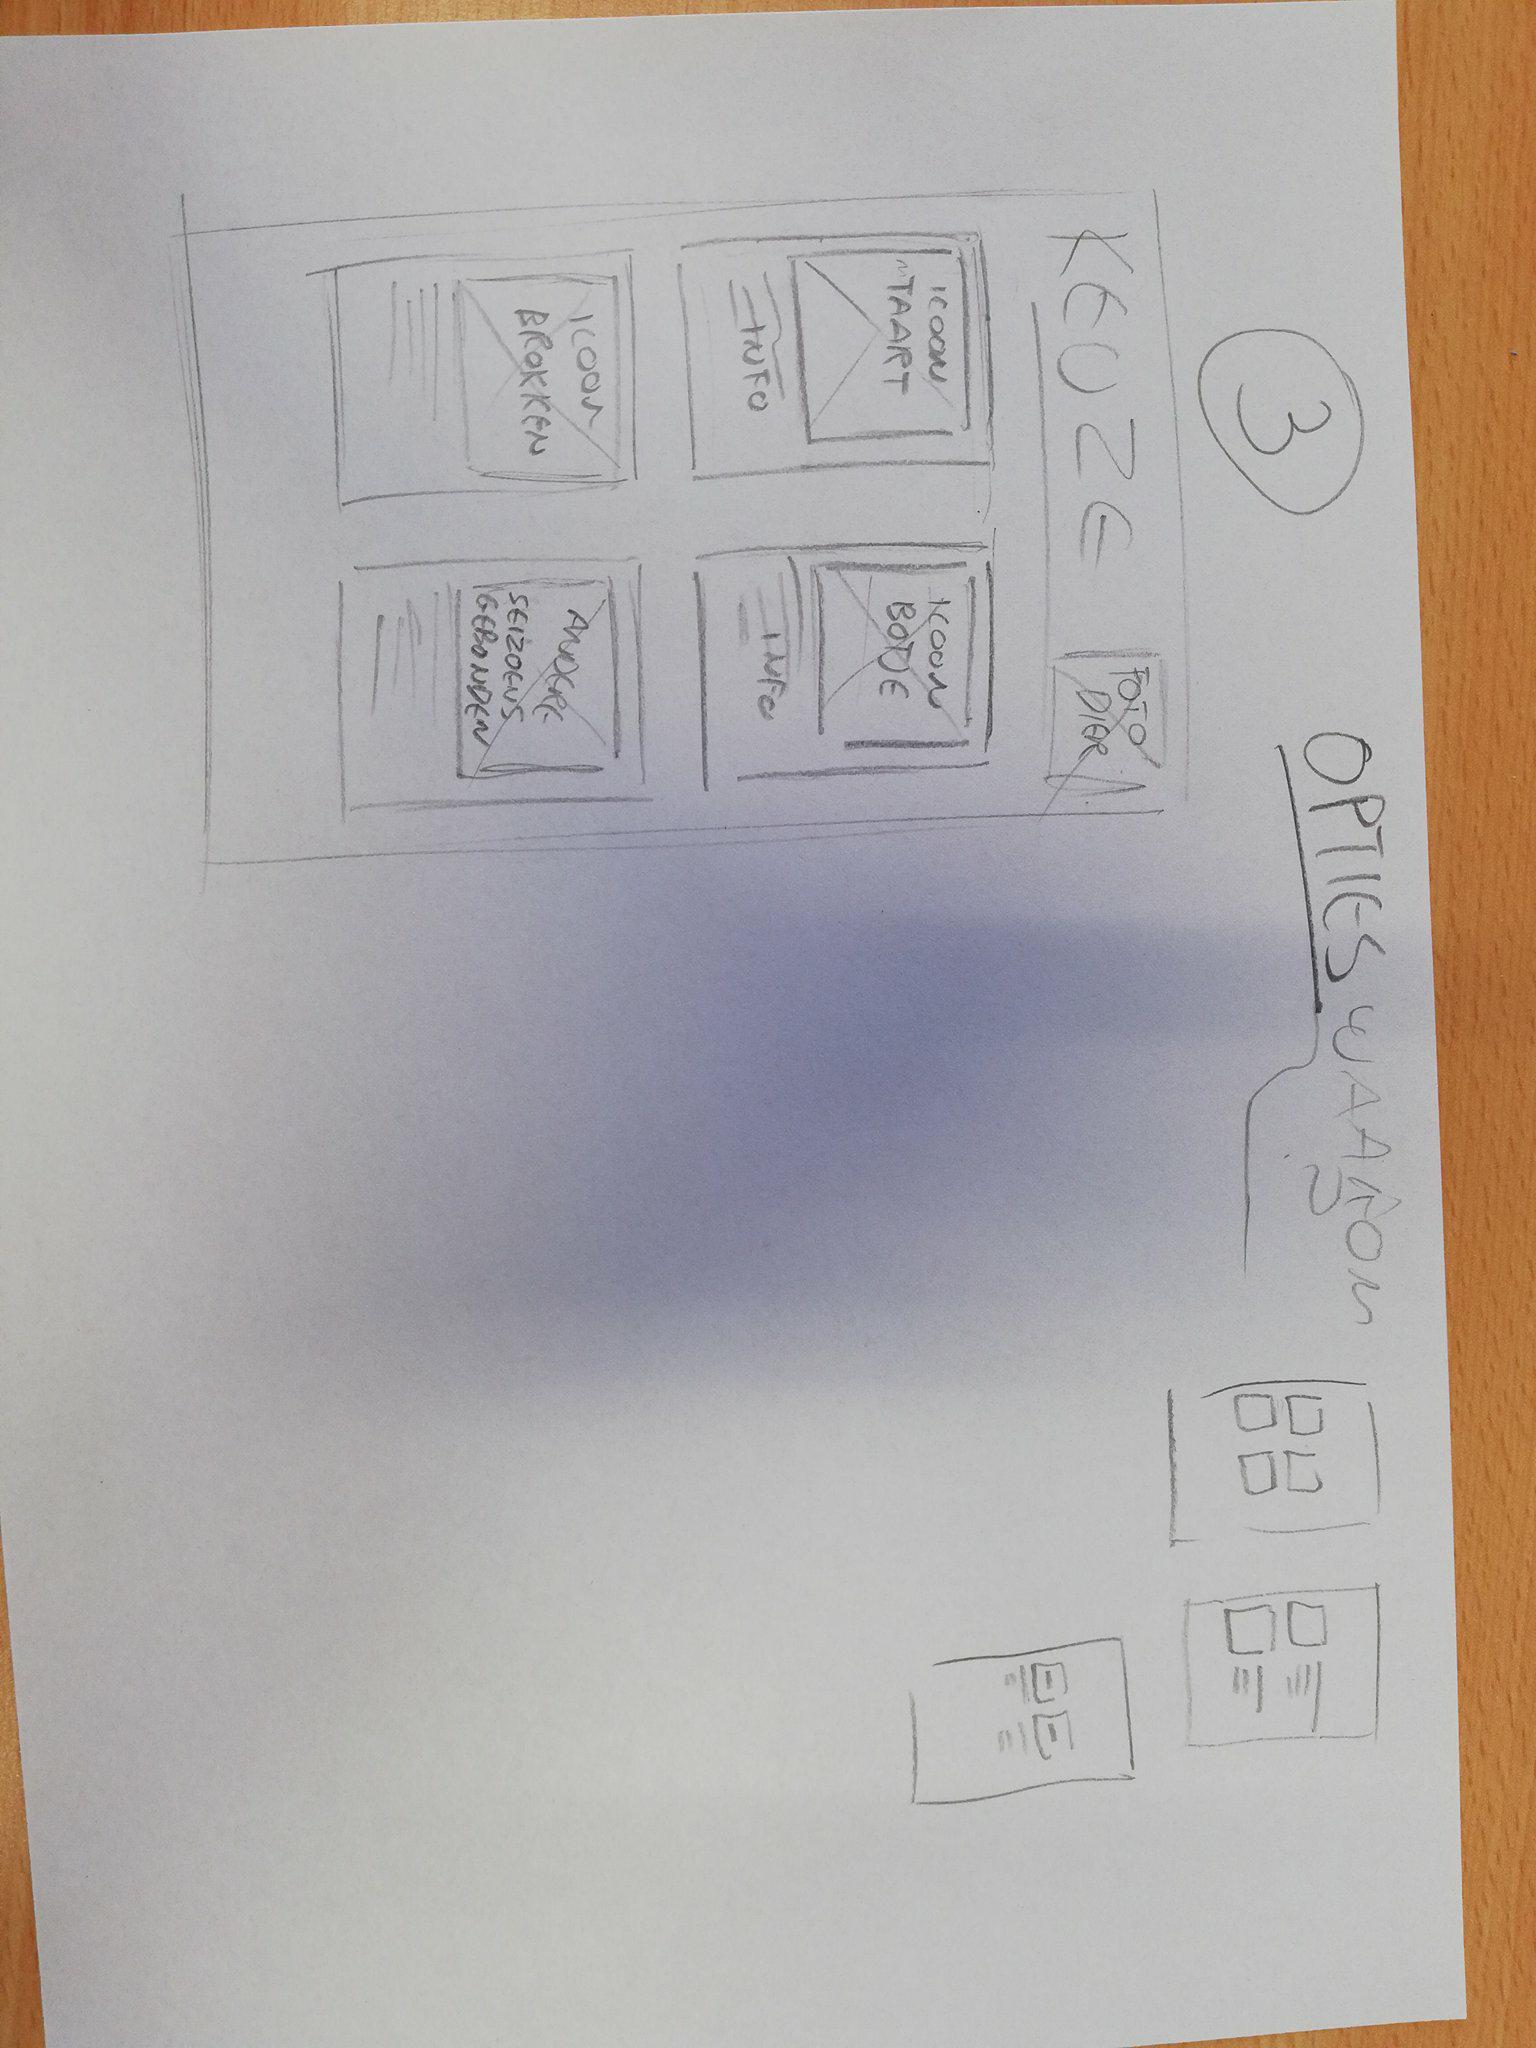 3
OPTIES WAAROM
?
KEUZE
FOTO
DIER
ICOON
TAART
INFO
ICOON
BOTJE
INFO
ICOON
BROKKEN
ANDERE
SEIZOENS
GEBONDEN